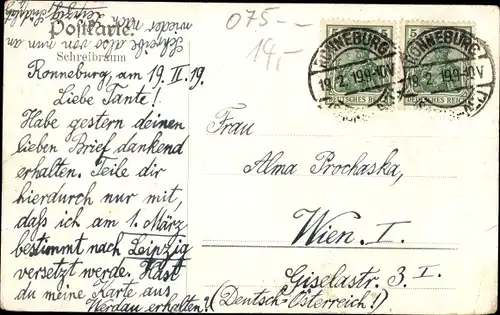 Postkarte.
Schreibraum
Schreibe also von nun an
wieder nach
Leipzig
075--
14,-
RONNEBURG
19.2.19.9-10V
5
5
RONNEBURG
19.2.19.9-10V
DEUTSCHES REICH
DEUTSCHES REICH
Ronneburg, am 19. II. 19.
Liebe Tante!
Habe gestern deinen
lieben Brief dankend
erhalten. Teile dir
hierdurch nur mit,
daß ich am 1. März
bestimmt nach Leipzig
versetzt werde. Hast
du meine Karte aus
Werdau erhalten?
Frau
Alma Prochaska,
Wien. I.
Giselastr. 3. I.
(Deutsch-Österreich!)